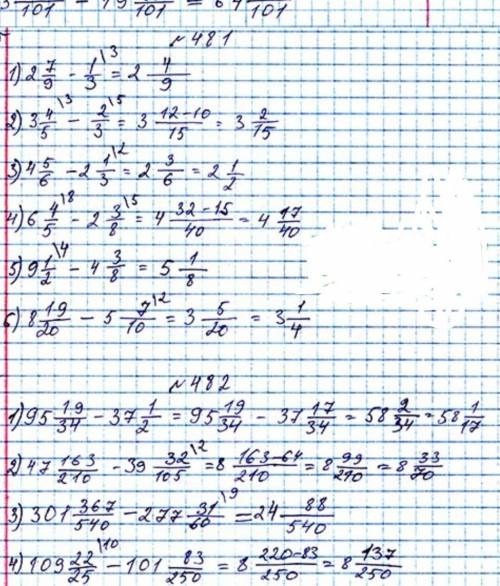 101 - 19 101 = 64 101
№481
1) 2 7/9 - 1/3 \3 = 2 4/9
2) 3 4/5 \3 - 2/3 \5 = 3 12-10/15 = 3 2/15
3) 4 5/6 - 2 1/3 \2 = 2 3/6 = 2 1/2
4) 6 4/5 \8 - 2 3/8 \5 = 4 32-15/40 = 4 17/40
5) 9 1/2 \4 - 4 3/8 = 5 1/8
6) 8 19/20 - 5 7/10 \2 = 3 5/20 = 3 1/4
№482
1) 95 19/34 - 37 1/2 = 95 19/34 - 37 17/34 = 58 2/34 = 58 1/17
2) 47 163/210 - 39 32/105 \2 = 8 163-64/210 = 8 99/210 = 8 33/70
3) 301 367/540 - 277 31/60 \9 = 24 88/540
4) 109 22/25 \10 - 101 83/250 = 8 220-83/250 = 8 137/250